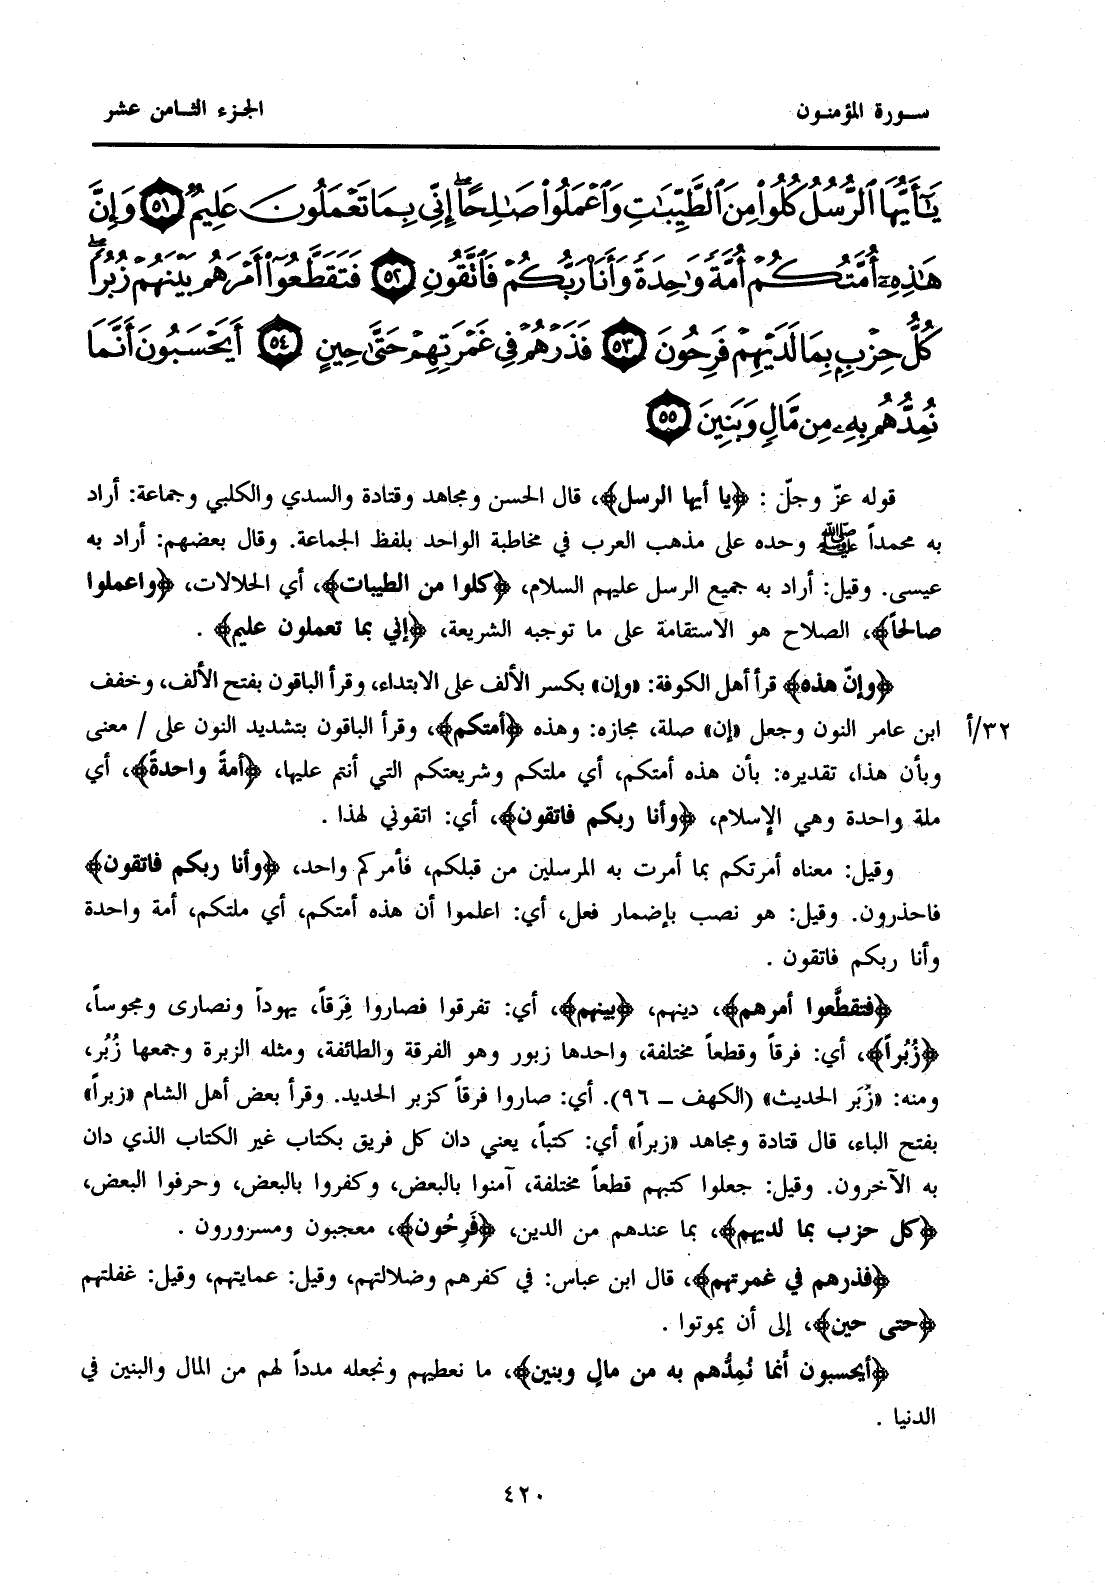 سورة المؤمنون
الجزء الثامن عشر
يَٰٓأَيُّهَا ٱلرُّسُلُ كُلُواْ مِنَ ٱلطَّيِّبَٰتِ وَٱعْمَلُواْ صَٰلِحًا ۖ إِنِّي بِمَا تَعْمَلُونَ عَلِيمٌ ٥١ وَإِنَّ
هَٰذِهِۦٓ أُمَّتُكُمْ أُمَّةً وَٰحِدَةً وَأَنَا۠ رَبُّكُمْ فَٱتَّقُونِ ٥٢ فَتَقَطَّعُوٓاْ أَمْرَهُم بَيْنَهُمْ زُبُرًا ۖ
كُلُّ حِزْبٍۭ بِمَا لَدَيْهِمْ فَرِحُونَ ٥٣ فَذَرْهُمْ فِي غَمْرَتِهِمْ حَتَّىٰ حِينٍ ٥٤ أَيَحْسَبُونَ أَنَّمَا
نُمِدُّهُم بِهِۦ مِن مَّالٍ وَبَنِينَ ٥٥
قوله عزّ وجلّ : ﴿يا أيها الرسل﴾، قال الحسن ومجاهد وقتادة والسدي والكلبي وجماعة: أراد
به محمداً ﷺ وحده على مذهب العرب في مخاطبة الواحد بلفظ الجماعة. وقال بعضهم: أراد به
عيسى. وقيل: أراد به جميع الرسل عليهم السلام، ﴿كلوا من الطيبات﴾، أي الحلالات، ﴿واعملوا
صالحاً﴾، الصلاح هو الاستقامة على ما توجبه الشريعة، ﴿إني بما تعملون عليم﴾ .
﴿وإنّ هذه﴾ قرأ أهل الكوفة: «وإن» بكسر الألف على الابتداء، وقرأ الباقون بفتح الألف، وخفف
٣٢/أ ابن عامر النون وجعل «إن» صلة، مجازه: وهذه ﴿أمتكم﴾، وقرأ الباقون بتشديد النون على / معنى
وبأن هذا، تقديره: بأن هذه أمتكم، أي ملتكم وشريعتكم التي أنتم عليها، ﴿أمةً واحدةً﴾، أي
ملة واحدة وهي الإسلام، ﴿وأنا ربكم فاتقون﴾، أي: اتقوني لهذا .
وقيل: معناه أمرتكم بما أمرت به المرسلين من قبلكم، فأمركم واحد، ﴿وأنا ربكم فاتقون﴾
فاحذرون. وقيل: هو نصب بإضمار فعل، أي: اعلموا أن هذه أمتكم، أي ملتكم، أمة واحدة
وأنا ربكم فاتقون .
﴿فتقطَّعوا أمرهم﴾، دينهم، ﴿بينهم﴾، أي: تفرقوا فصاروا فِرَقاً، يهوداً ونصارى ومجوساً،
﴿زُبُراً﴾، أي: فرقاً وقطعاً مختلفة، واحدها زبور وهو الفرقة والطائفة، ومثله الزبرة وجمعها زُبُر،
ومنه: «زُبَر الحديث» (الكهف ـ ٩٦). أي: صاروا فرقاً كزبر الحديد. وقرأ بعض أهل الشام «زبراً»
بفتح الباء، قال قتادة ومجاهد «زبراً» أي: كتباً، يعني دان كل فريق بكتاب غير الكتاب الذي دان
به الآخرون. وقيل: جعلوا كتبهم قطعاً مختلفة، آمنوا بالبعض، وكفروا بالبعض، وحرفوا البعض،
﴿كل حزب بما لديهم﴾، بما عندهم من الدين، ﴿فَرِحُون﴾، معجبون ومسرورون .
﴿فذرهم في غمرتهم﴾، قال ابن عباس: في كفرهم وضلالتهم، وقيل: عمايتهم، وقيل: غفلتهم
﴿حتى حين﴾، إلى أن يموتوا .
﴿أيحسبون أنما نُمِدُّهم به من مالٍ وبنين﴾، ما نعطيهم ونجعله مدداً لهم من المال والبنين في
الدنيا .
٤٢٠